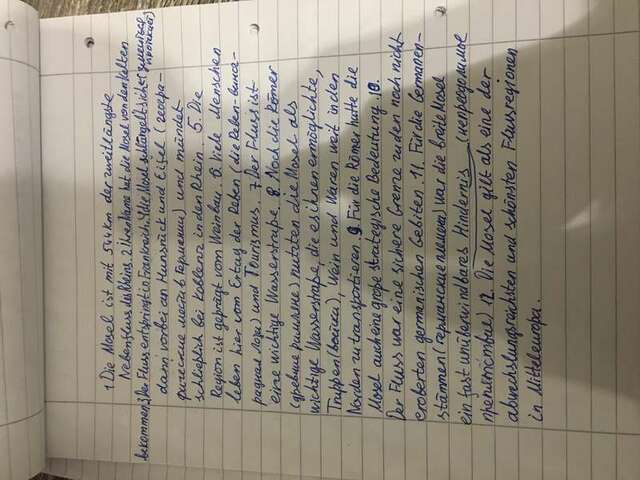 1 Die Mosel ist mit 544 km der zweitlängste
Nebenfluss des Rheins. 2. Ihren Name hat die Mosel von den Kelten
bekommen. 3. Der Fluss entspringt in Frankreich. 4. Die Mosel schlängelt sich
dann vorbei an Hunsrück und Eifel (геогра-
фические места в Германии) und mündet
schließlich bei Koblenz in den Rhein. 5. Die
Region ist geprägt vom Weinbau. 6. Viele Menschen
leben hier vom Ertrag der Reben (die Reben -
) und Tourismus. 7. Der Fluss ist
eine wichtige Wasserstraße. 8. Noch die Römer
(древние римляне) nutzten die Mosel als
wichtige Wasserstraße, die es ihnen ermöglichte,
Truppen (войска), Wein und Waren weit in den
Norden zu transportieren. 9. Für die Römer hatte die
Mosel auch eine große strategische Bedeutung. 10.
Der Fluss war eine sichere Grenze zu den noch nicht
eroberten germanischen Gebieten. 11. Für die Germanen-
stämmen (германские племена) war die breite Mosel
ein fast unüberwindbares Hindernis (непреодолимое
препятствие) 12. Die Mosel gilt als eine der
abwechslungsreichsten und schönsten Flussregionen
in Mitteleuropa.